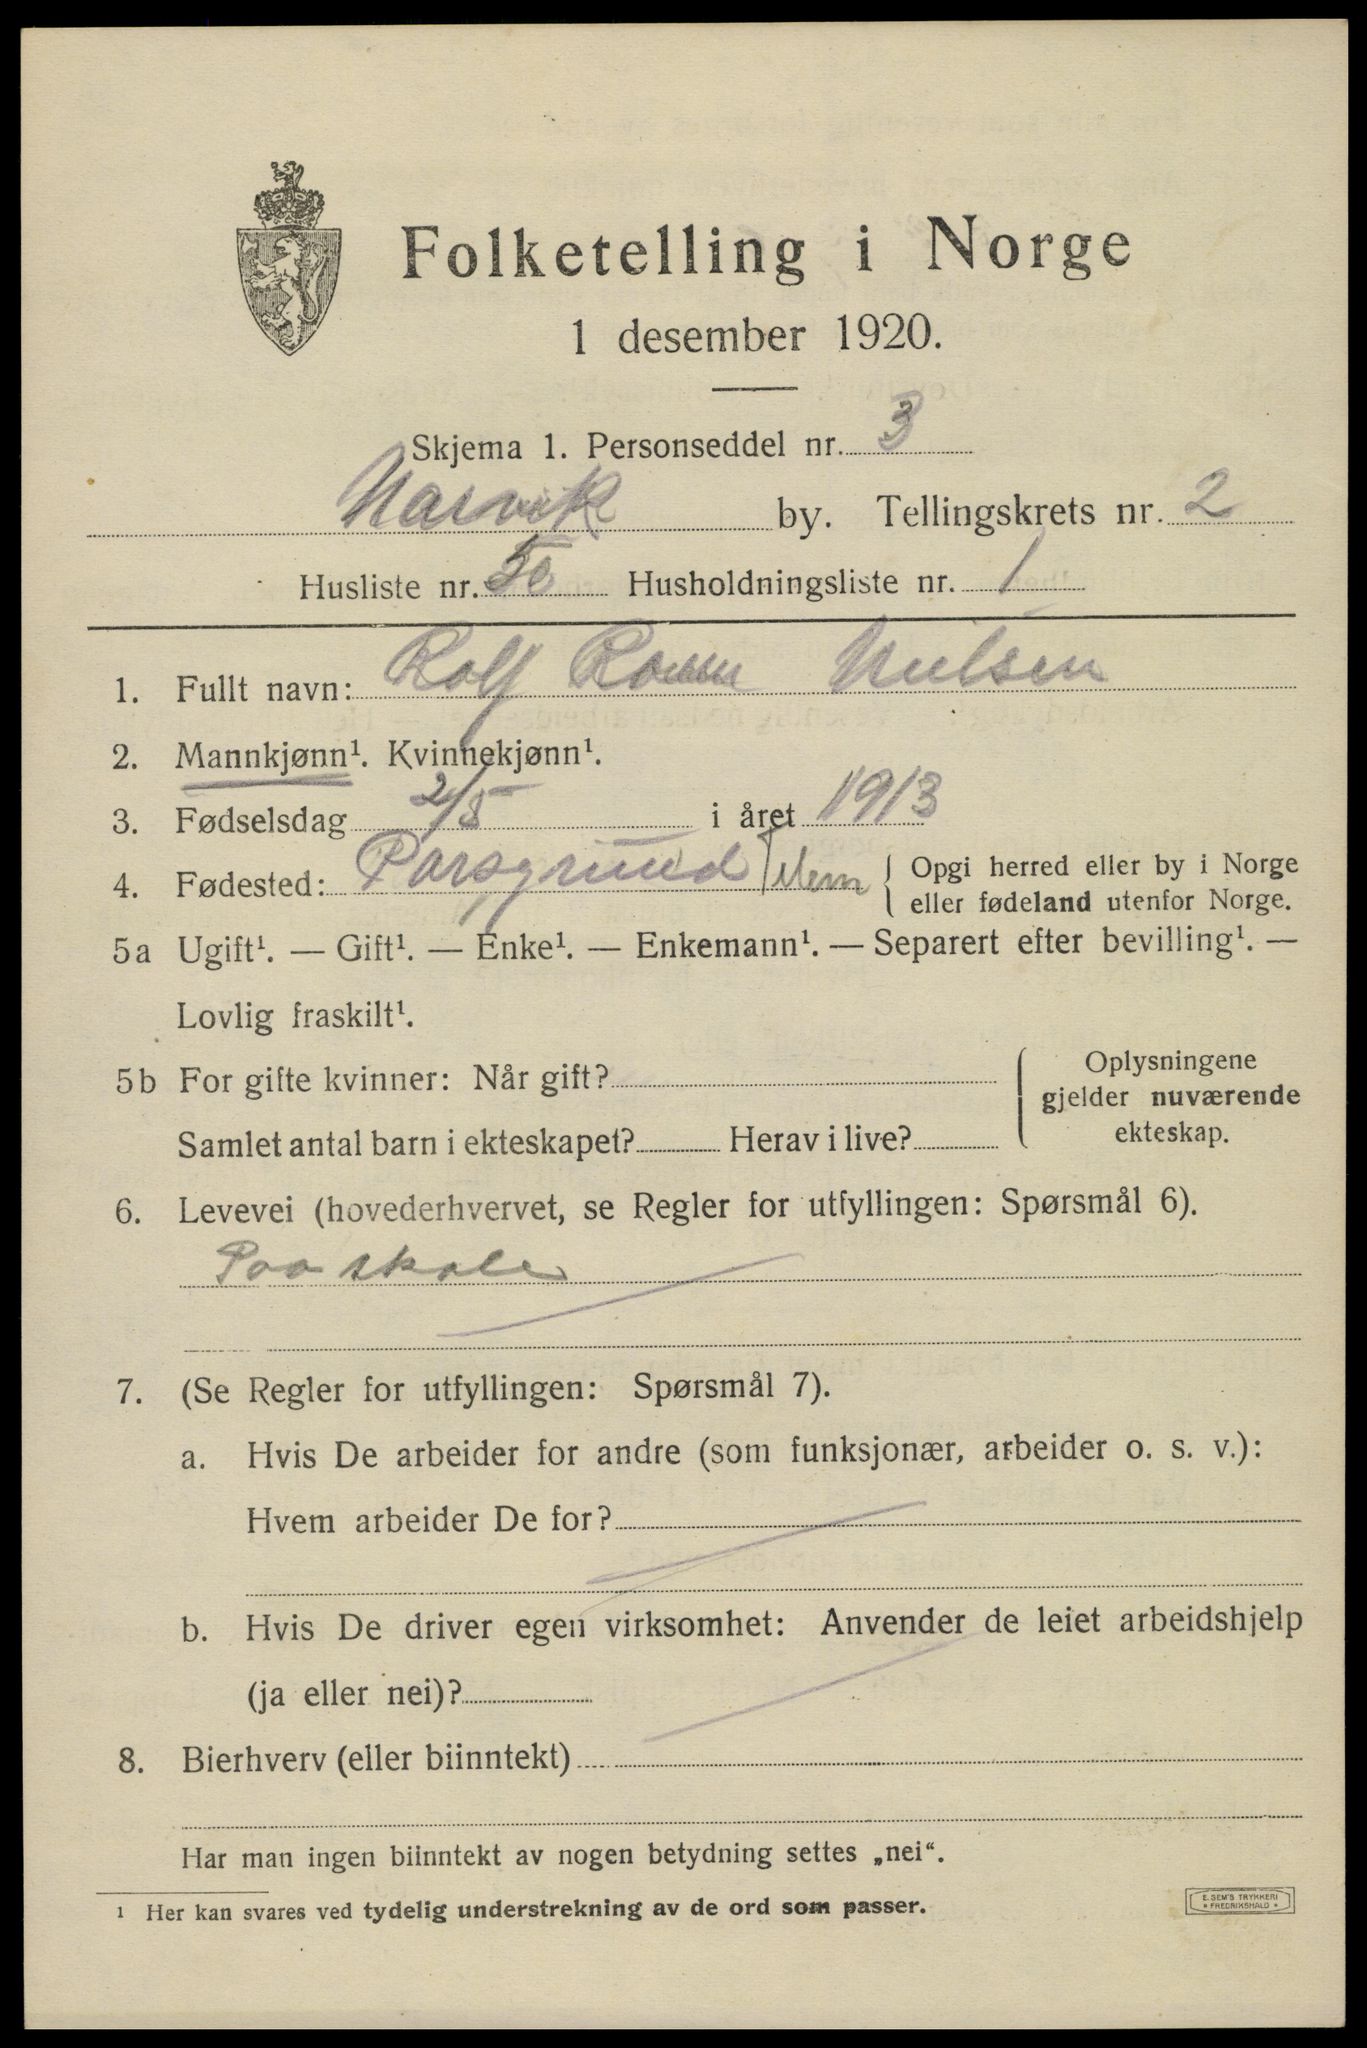 Folketelling i Norge
1 desember 1920.
Skjema 1. Personseddel nr. 3
Narvik by. Tellingskrets nr. 2
Husliste nr. 50 Husholdningsliste nr. 1
1. Fullt navn: Rolf Nielsen
2. Mannkjønn¹. Kvinnekjønn¹.
3. Fødselsdag 2/5 i året 1913
4. Fødested: Porsgrund Telem { Opgi herred eller by i Norge
eller fødeland utenfor Norge.
5a Ugift¹. — Gift¹. — Enke¹. — Enkemann¹. — Separert efter bevilling¹. —
Lovlig fraskilt¹.
5b For gifte kvinner: Når gift? { Oplysningene
gjelder nuværende
Samlet antal barn i ekteskapet? Herav i live? ekteskap.
6. Levevei (hovederhvervet, se Regler for utfyllingen: Spørsmål 6).
Paa skole
7. (Se Regler for utfyllingen: Spørsmål 7).
a. Hvis De arbeider for andre (som funksjonær, arbeider o. s. v.):
Hvem arbeider De for?
b. Hvis De driver egen virksomhet: Anvender de leiet arbeidshjelp
(ja eller nei)?
8. Bierhverv (eller biinntekt)
Har man ingen biinntekt av nogen betydning settes „nei“.
1 Her kan svares ved tydelig understrekning av de ord som passer.
E. SEM'S TRYKKERI
* FREDRIKSHALD *